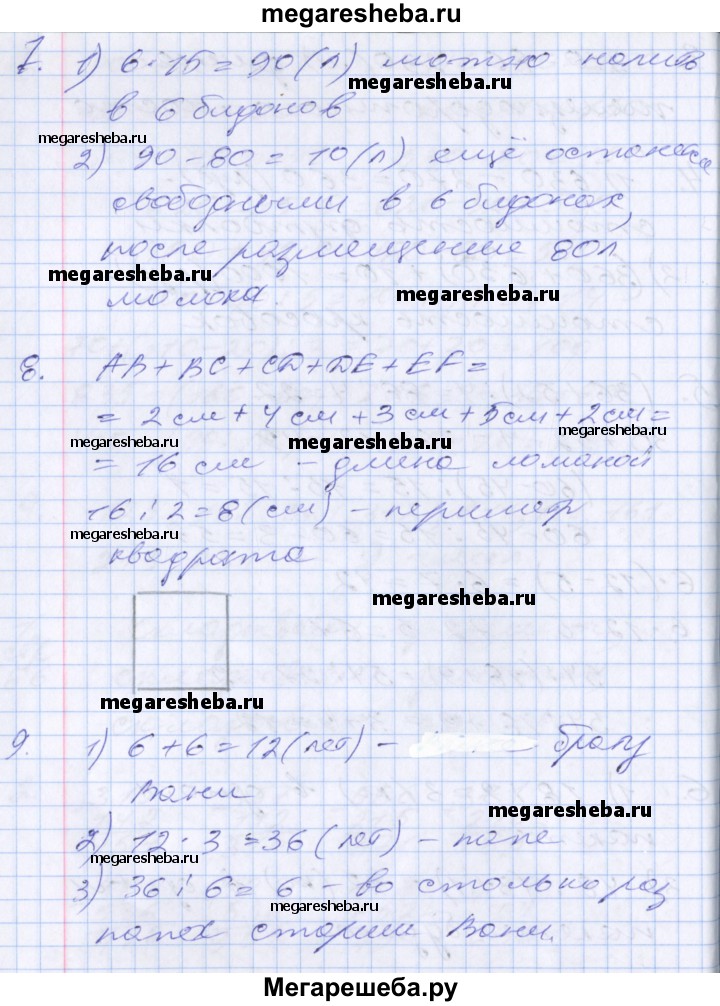 megaresheba.ru
7. 1) 6 · 15 = 90 (л) можно налить
megaresheba.ru
в 6 бидонов
megaresheba.ru
2) 90 - 80 = 10 (л) ещё останется
свободными в 6 бидонах,
после размещение 80л
megaresheba.ru
молока.
megaresheba.ru
8. AB + BC + CD + DE + EF =
= 2 см + 4 см + 3 см + 5 см + 2 см =
megaresheba.ru megaresheba.ru megaresheba.ru
= 16 см - длина ломаной
16 : 2 = 8 (см) - периметр
megaresheba.ru
квадрата
megaresheba.ru
megaresheba.ru
9. 1) 6 + 6 = 12 (лет) - брату
Вани
megaresheba.ru
2) 12 · 3 = 36 (лет) - папе
megaresheba.ru
3) 36 : 6 = 6 - во столько раз
megaresheba.ru
папа старше Вани.
Мегарешеба.ру